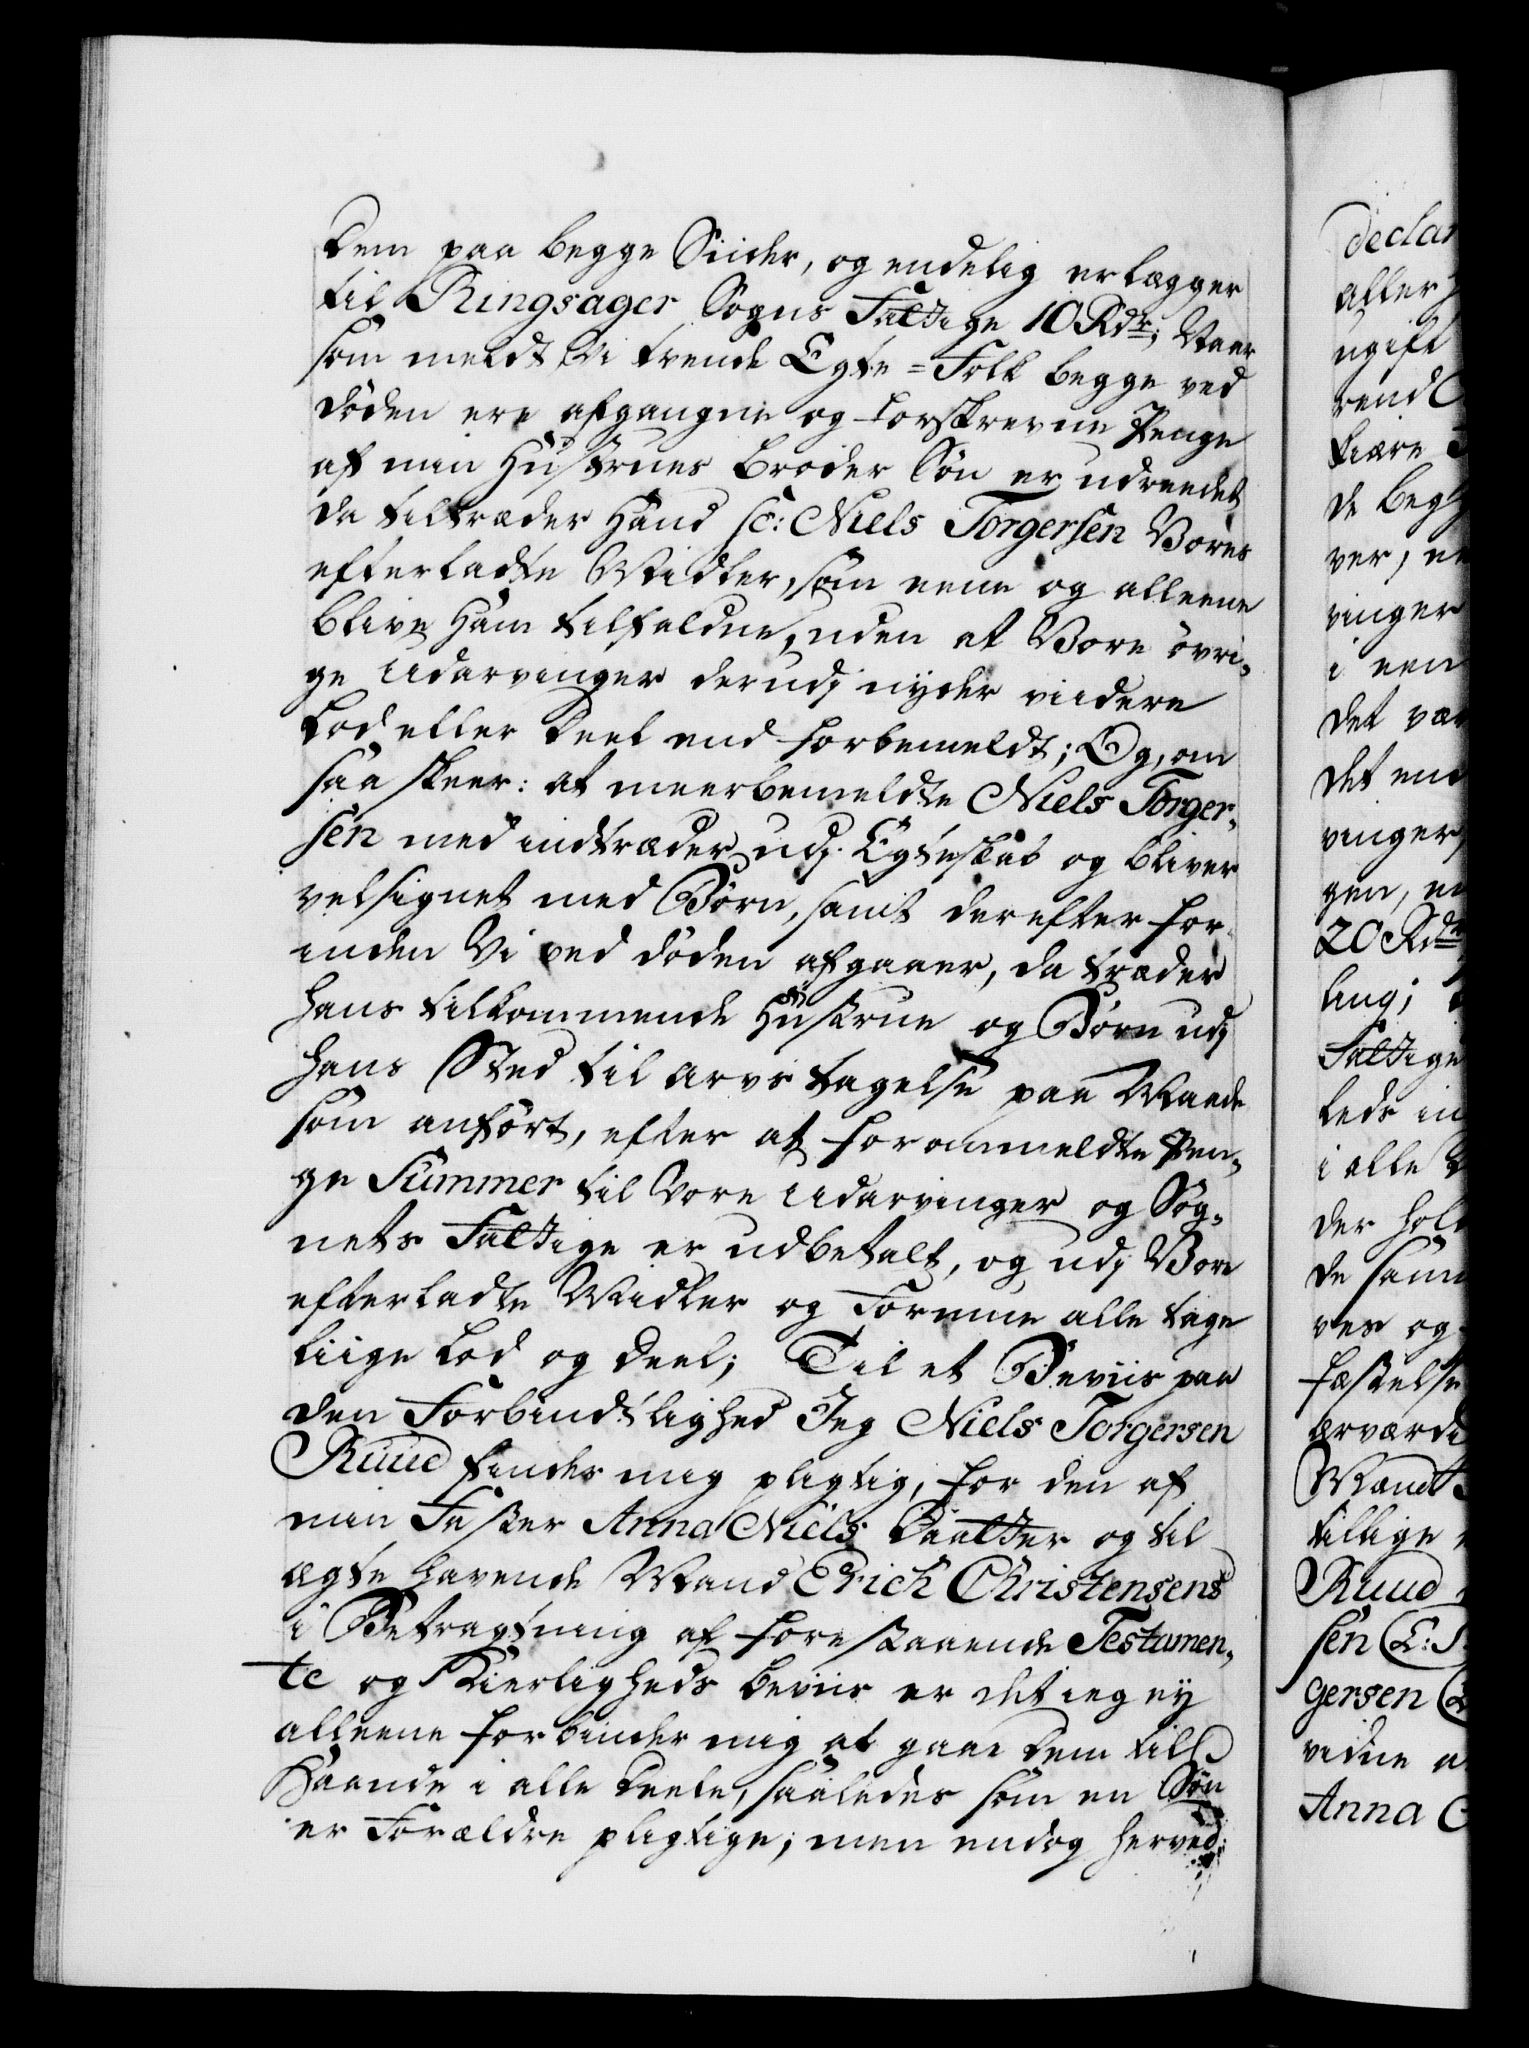 dem paa begge Siider, og endelig erlægger
til Ringsager Sogns Fattige 10 Rdr; Naar
som meldt Vi trende Egte=Folk begge ved
döden ere afgangne og forskrevne Penge
af min Hüstrues broder Sön er udreedet
da tiltræder Hand /: Niels Torgersen Vores
efterladte Midler, som eene og alleene
blive Ham tilfaldne, uden at Vore övri¬
ge Udarvinger derudj nyder viidere
Lod eller deel end forbemeldt; Og, om
saa skeer: at meerbemeldte Niels Torger¬
sen med indtræder udj Egteskab og bliver
velsignet med Börn, samt derefter for¬
inden Vi ved döden afgaaer, da træder
hans tilkommende Hüstrue og Börn udj
hans Sted til arvs tagelse paa Maade
som anfört, efter at forommeldte Pen¬
ge Summer til Vore Udarvinger og Sog¬
nets Fattige er udbetalt, og udj Vore
efterladte Midler og Formue alle tage
liige Lod og deel; Til et Beviis paa
den Forbindtlighed Jeg Niels Torgersen
Ruud finder mig pligtig, for den af
min Faster Anna Niels Daatter og til
ægte havende Mand Erich Christensens
i Betragtning af forestaaende Testamen¬
te og Kierligheds beviis er det ieg ey
alleene forbinder mig at gaae dem till
Haande i alle deele, saaledes som en Sön
er Forældre pligtige; men endog herved
declar
aller
ugift
rend
kiære
de beg
ver, en
vinger
i een
det vær
det end
vinger,
gen, en
20 Rdr
ling;
Fattige
leds in
i alle
der hol
de sam
ves og
fæstelse
ærværdi
Mand
tillige
Ruud
sen (L: S
gersen (L
vidne a
Anna C